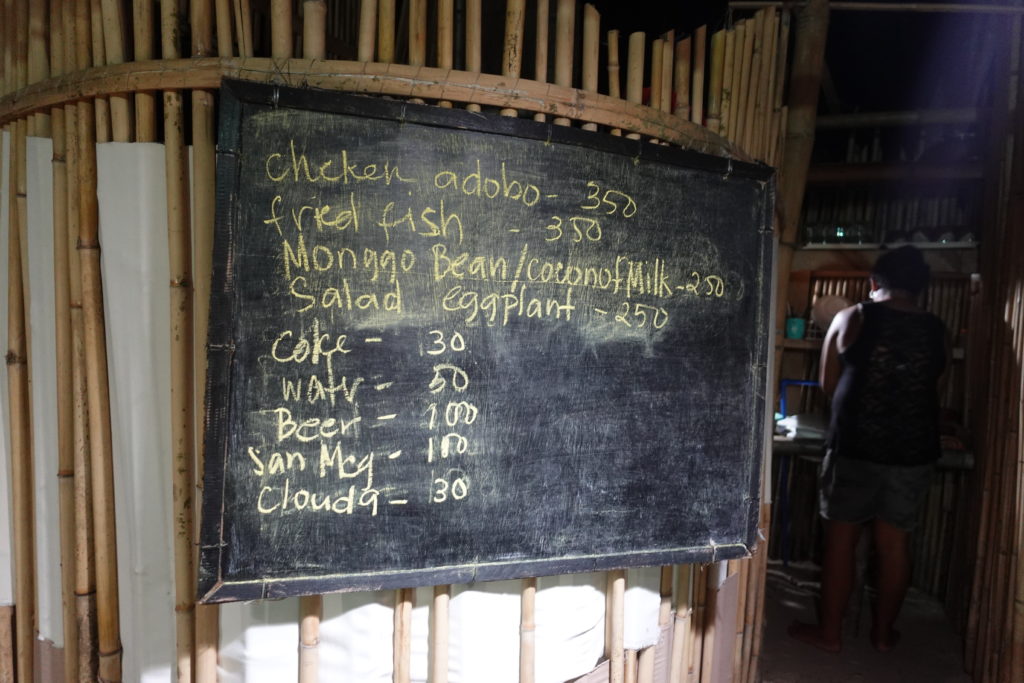 Chicken adobo - 350
fried fish - 350
Monggo Bean/coconot Milk - 250
Salad eggplant - 250
Coke - 30
watr - 50
Beer - 100
San Meg - 100
Cloud9 - 30